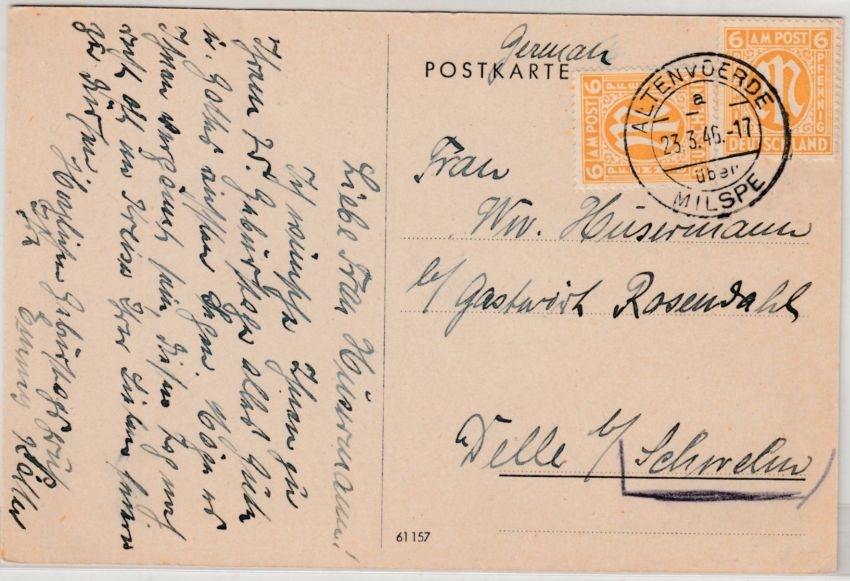 German
POSTKARTE
6 AM POST 6
PFENNIG
DEUTSCHLAND
6 AM POST 6
ALTENVOERDE
a
23.3.46.-17
über
MILSPE
Frau
Ww. Hüsermann
b/ Gastwirt Rosendahl
Delle b/
Schwelm
61157
Liebe Frau Hüsermann!
Ich wünsche Ihnen zu
Ihrem 75. Geburtstage alles Gute
u. Gottes reichsten Segen. Möge es
Ihnen vergönnt sein diesen Tag noch
recht oft im Kreise Ihrer Lieben feiern
zu dürfen.
Herzlichen Geburtstagsgruß